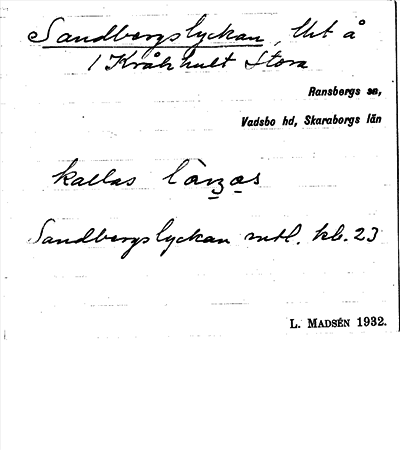 Sandbergslyckan, lht å
1 Kråkhult Stora
Ransbergs sn,
Vadsbo hd, Skaraborgs län
kallas
Sandbergslyckan mtl. kb. 23
L. MADSÉN 1932.